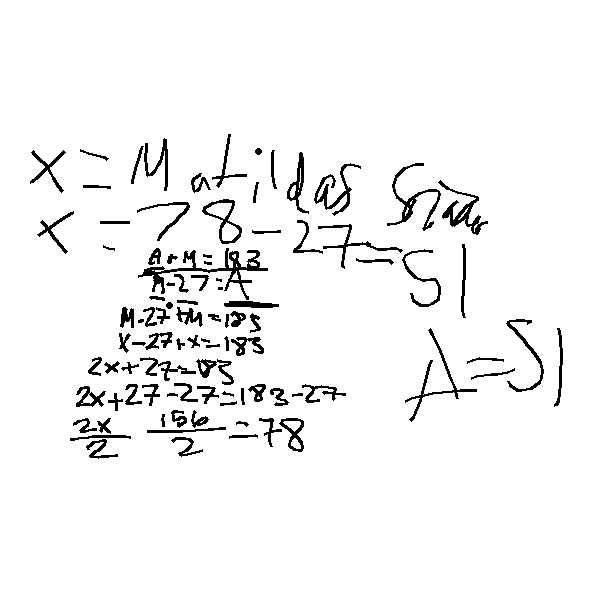 x = Matildas
x = 78 - 27 = 51
A + M = 183
M - 27 = A
M - 27 + M = 183
x - 27 + x = 183
2x + 27 = 183
2x + 27 - 27 = 183 - 27
2x/2 156/2 = 78
A = 51